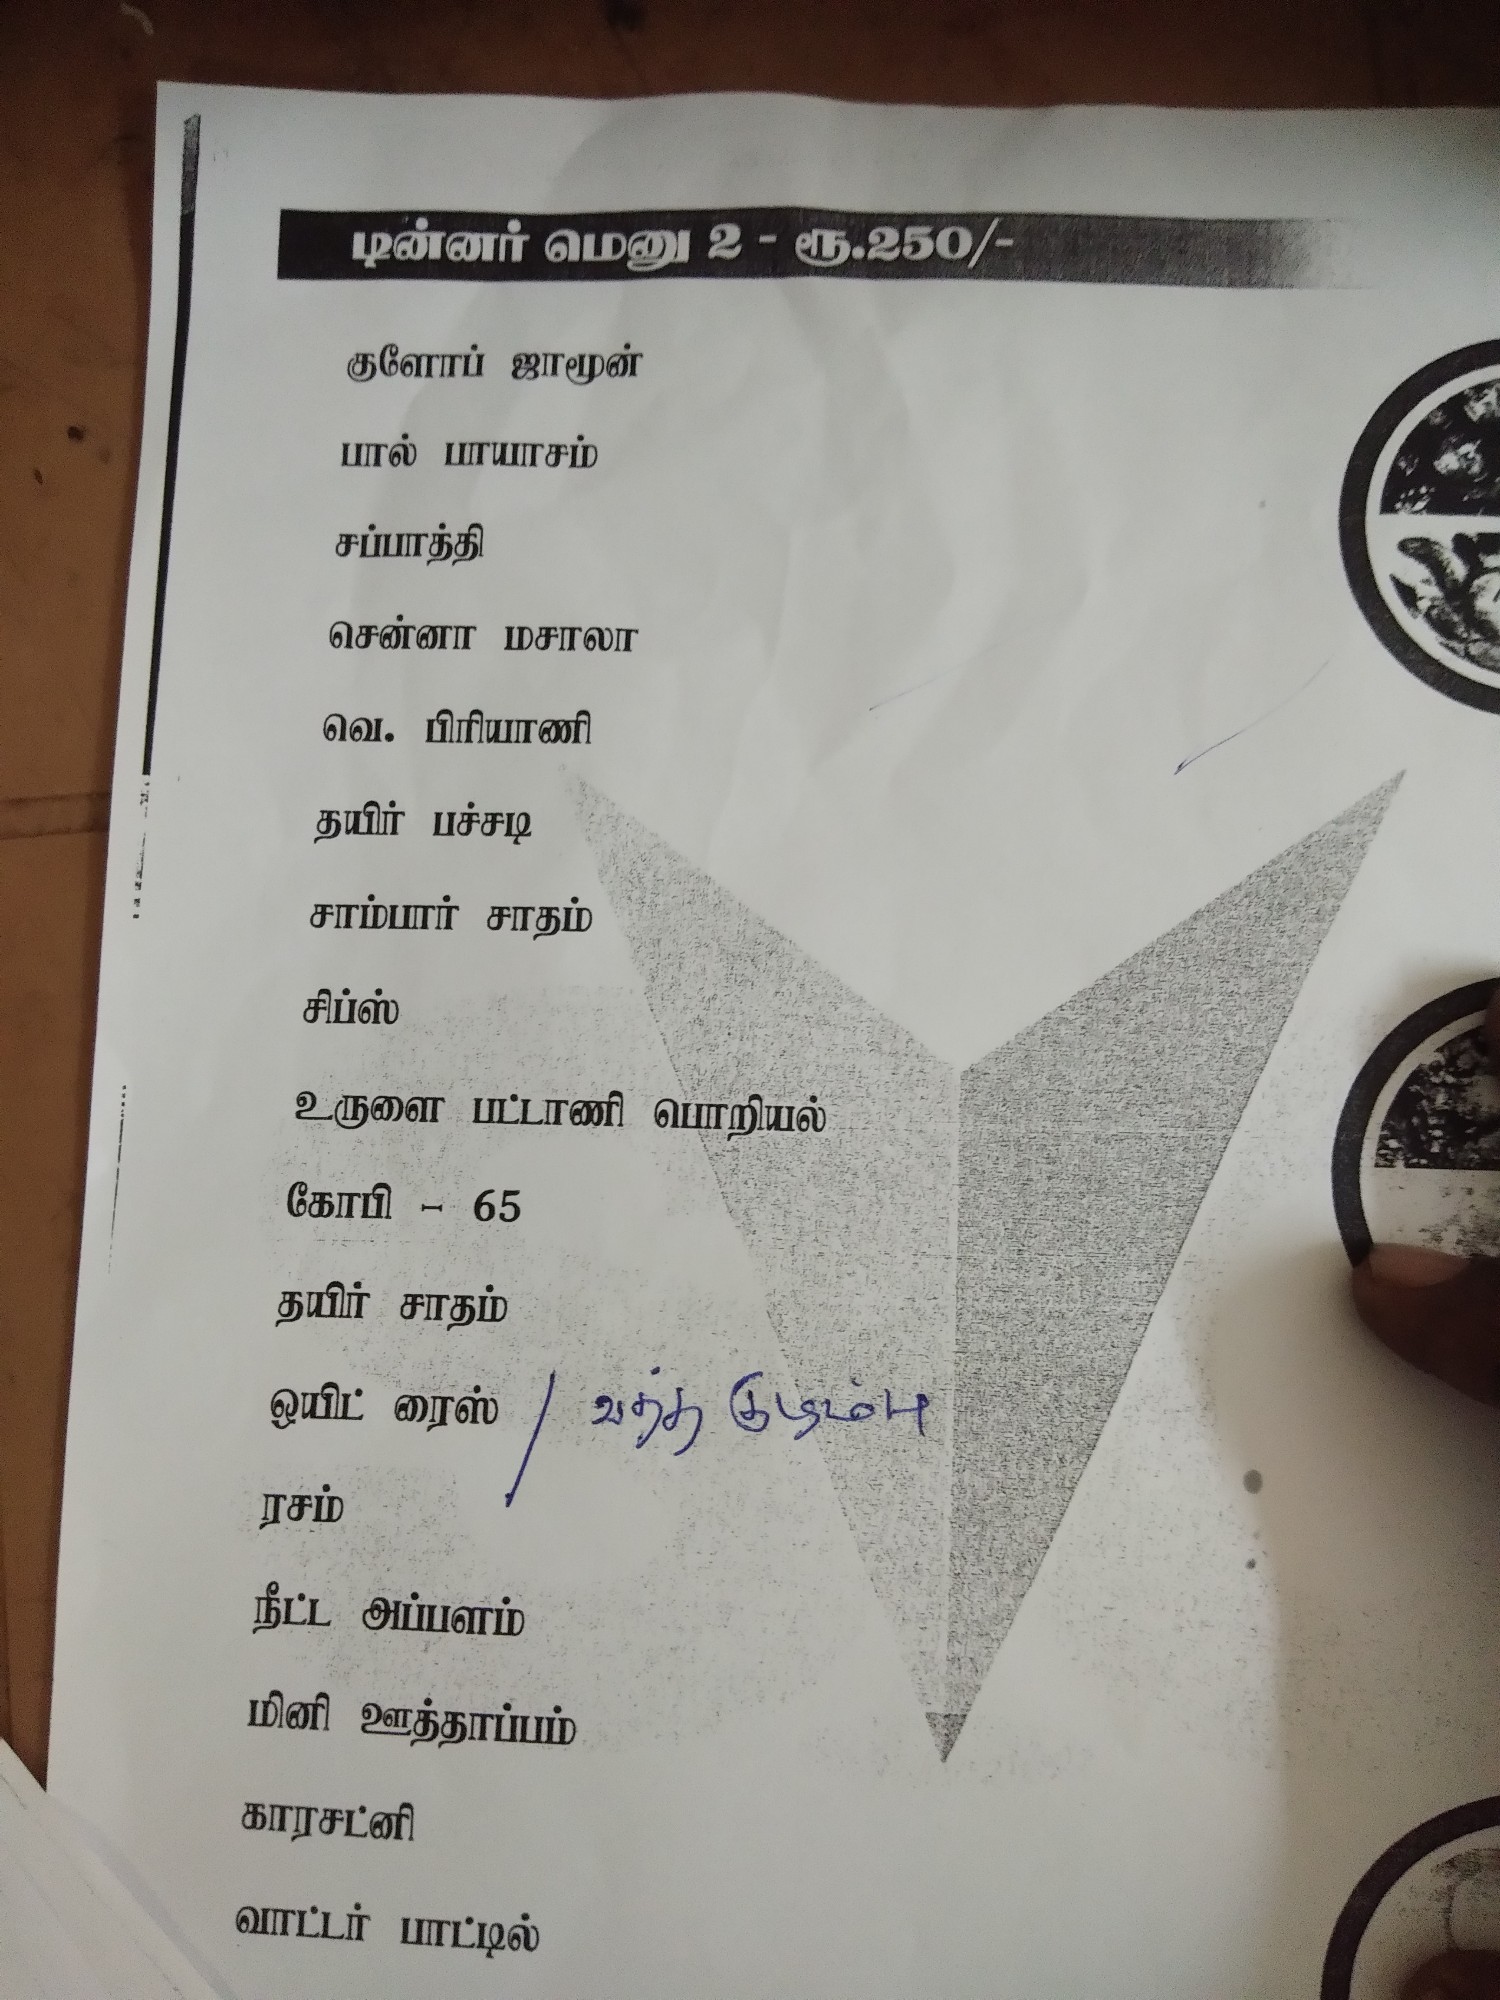 டின்னர் மெனு 2 - ரூ.250/-
குளோப் ஜாமூன்
பால் பாயாசம்
சப்பாத்தி
சென்னா மசாலா
வெ. பிரியாணி
தயிர் பச்சடி
சாம்பார் சாதம்
சிப்ஸ்
உருளை பட்டாணி பொறியல்
கோபி - 65
தயிர் சாதம்
ஒயிட் ரைஸ் / வத்த குழம்பு
ரசம்
நீட்ட அப்பளம்
மினி ஊத்தாப்பம்
காரசட்னி
வாட்டர் பாட்டில்